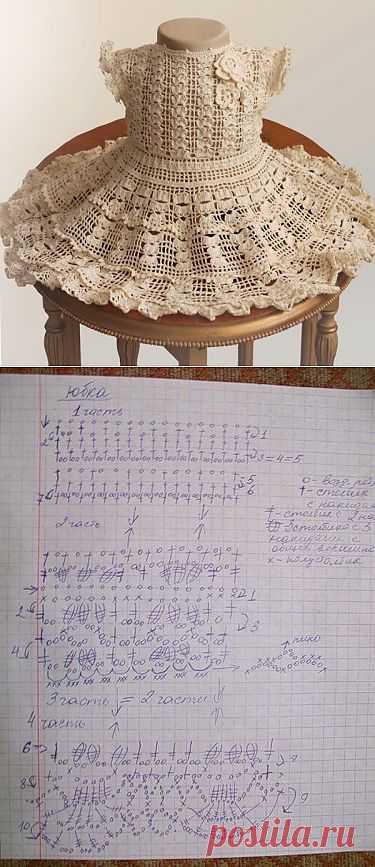 юбка
1 часть
1
3=4=5
5
6
о- возд. петл
†- столбик
с накидом
‡- столбик с 2 на
3 столбика с 3
накидами с
одной вершиной
х- полустолбик
2 часть
1
2
3
4
пико
3 часть = 2 части
4 часть
6
7
8
9
10
postila.ru